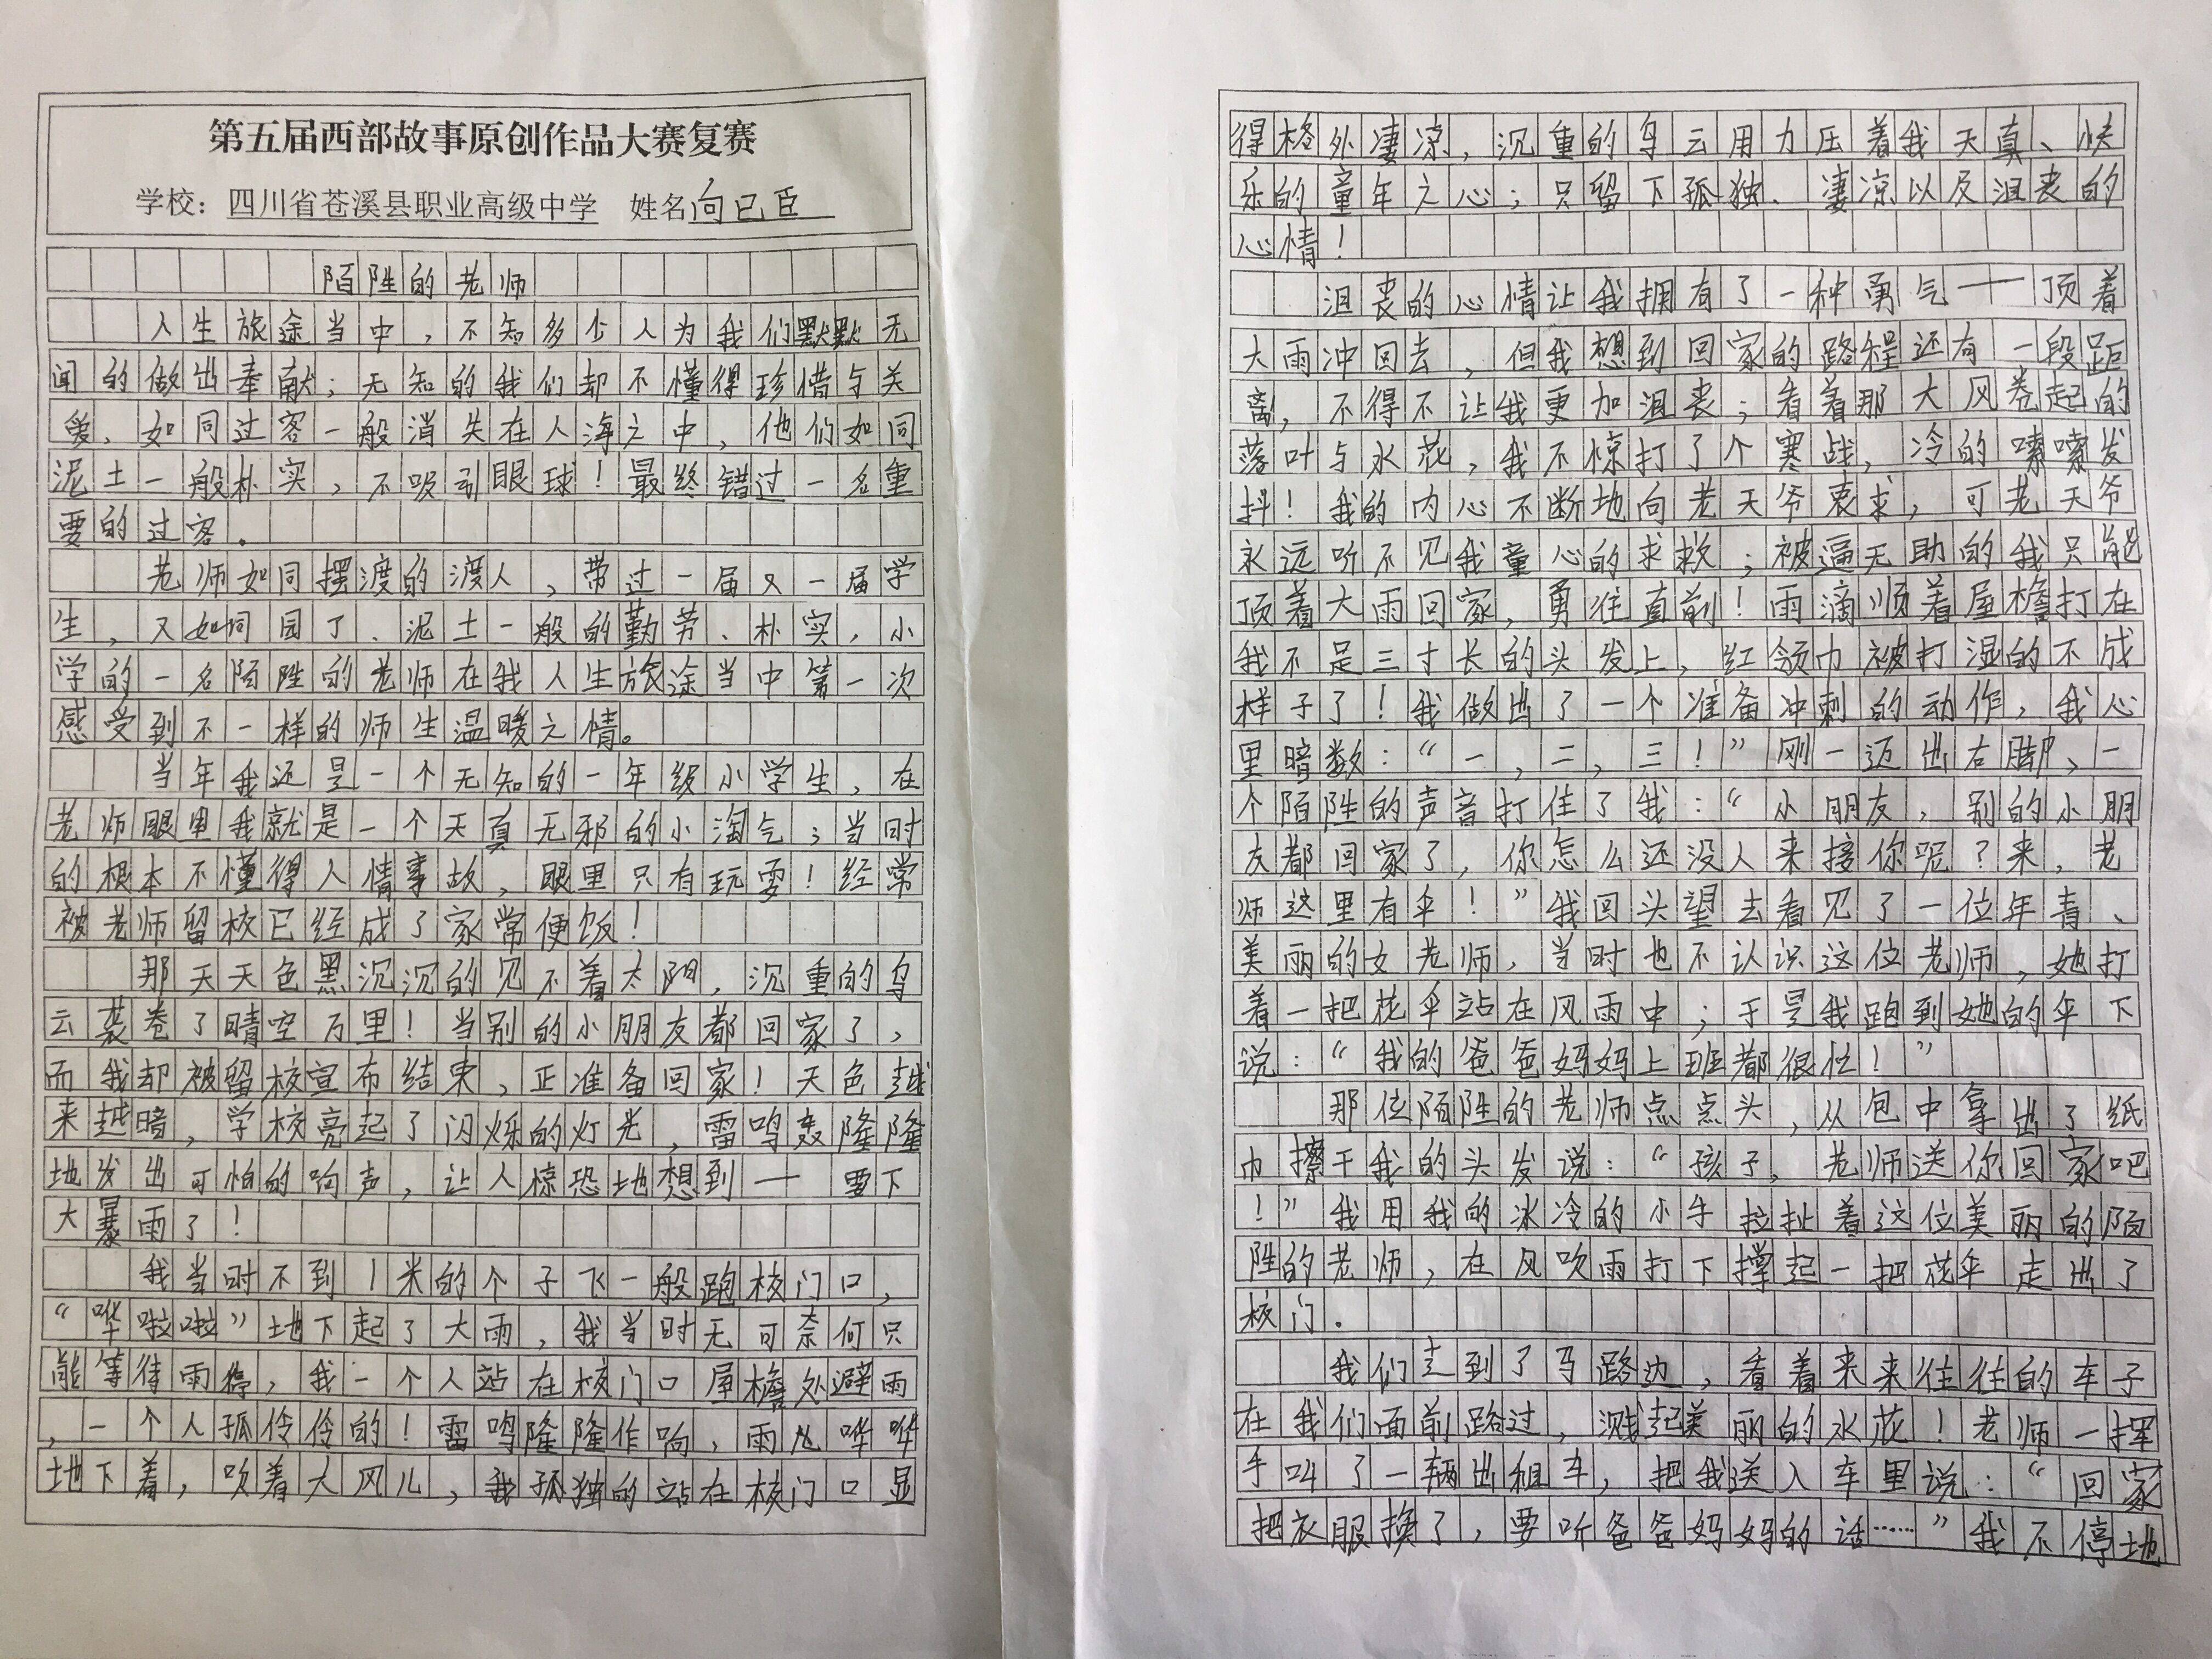 第五届西部故事原创作品大赛复赛
学校：四川省苍溪县职业高级中学 姓名向已臣
陌陞的老师
人生旅途当中，不知多少人为我们默默无
闻的做出奉献；无知的我们却不懂得珍惜与关
爱，如同过客一般消失在人海之中，他们如同
泥土一般朴实，不吸引眼球！最终错过一名重
要的过客。
老师如同摆渡的渡人，带过一届又一届学
生，又如同园丁、泥土一般的勤劳、朴实，小
学的一名陌陞的老师在我人生旅途当中第一次
感受到不一样的师生温暖之情。
当年我还是一个无知的一年级小学生，在
老师眼里我就是一个天真无邪的小淘气；当时
的根本不懂得人情事故，眼里只有玩耍！经常
被老师留校已经成了家常便饭！
那天天色黑沉沉的见不着太阳，沉重的乌
云袭卷了晴空万里！当别的小朋友都回家了，
而我却被留校宣布结束，正准备回家！天色越
来越暗，学校亮起了闪烁的灯光，雷鸣轰隆隆
地发出可怕的响声，让人惊恐地想到——要下
大暴雨了！
我当时不到1米的个子飞一般跑校门口，
“哗啦啦”地下起了大雨，我当时无可奈何只
能等待雨停，我一个人站在校门口屋檐处避雨
，一个人孤伶伶的！雷鸣隆隆作响，雨儿哗哗
地下着，吹着大风儿，我孤独的站在校门口显
得格外凄凉，沉重的乌云用力压着我天真、快
乐的童年之心；只留下孤独、凄凉以及沮丧的
心情！
沮丧的心情让我拥有了一种勇气——顶着
大雨冲回去，但我想到回家的路程还有一段距
离，不得不让我更加沮丧；看着那大风卷起的
落叶与水花，我不惊打了个寒战，冷的嗦嗦发
抖！我的内心不断地向老天爷哀求，可老天爷
永远听不见我童心的求救；被逼无助的我只能
顶着大雨回家，勇往直前！雨滴顺着屋檐打在
我不足三寸长的头发上，红领巾被打湿的不成
样子了！我做出了一个准备冲刺的动作，我心
里暗数：“一，二，三！”刚一迈出右脚，一
个陌陞的声音打住了我：“小朋友，别的小朋
友都回家了，你怎么还没人来接你呢？来，老
师这里有伞！”我回头望去看见了一位年青、
美丽的女老师，当时也不认识这位老师，她打
着一把花伞站在风雨中；于是我跑到她的伞下
说：“我的爸爸妈妈上班都很忙！”
那位陌陞的老师点点头，从包中拿出了纸
巾擦干我的头发说：“孩子，老师送你回家吧
！”我用我的冰冷的小手拉扯着这位美丽的陌
陞的老师，在风吹雨打下撑起一把花伞走出了
校门。
我们走到了马路边，看着来来往往的车子
在我们面前路过，溅起美丽的水花！老师一挥
手叫了一辆出租车，把我送入车里说：“回家
把衣服换了，要听爸爸妈妈的话……”我不停地